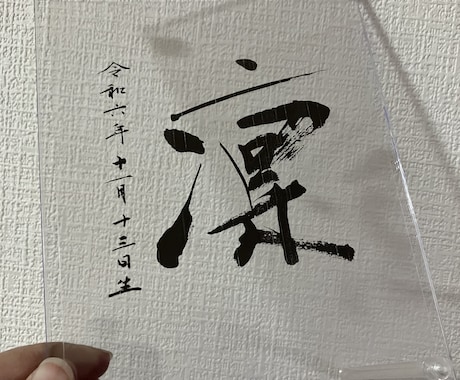 凛
令和六年十一月十三日生